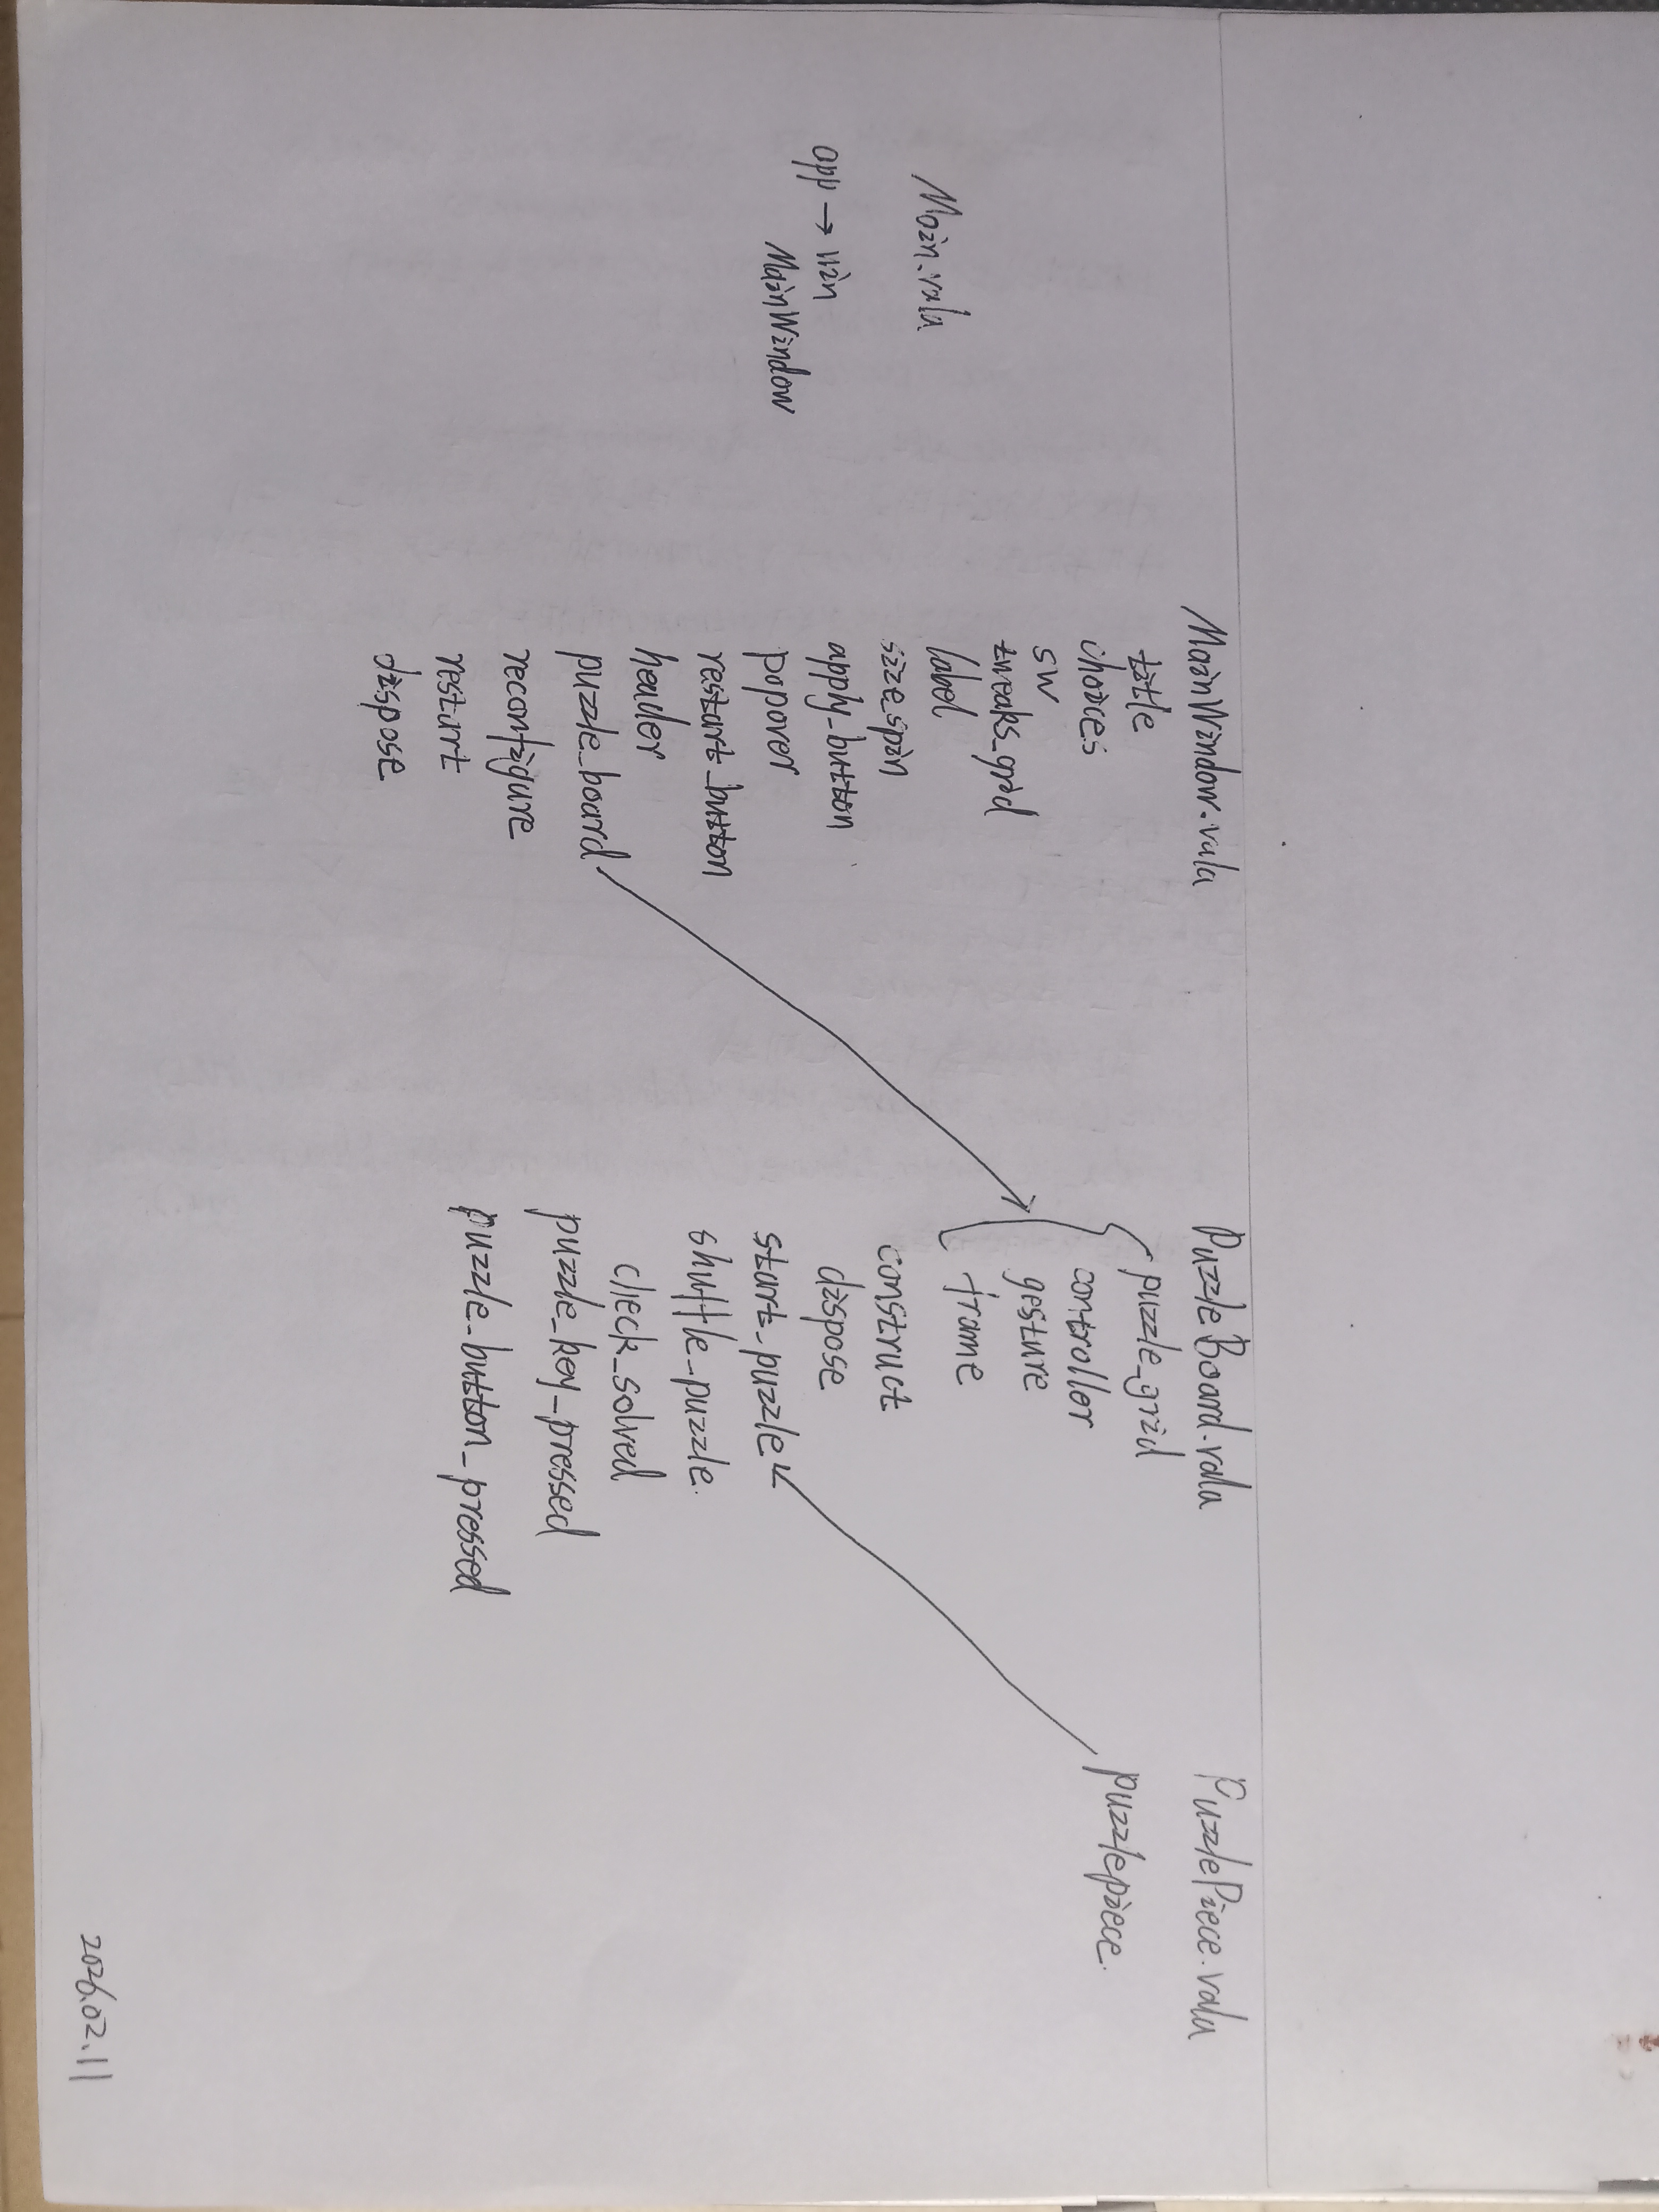 Main.vala
app → win
MainWindow
MainWindow.vala
title
choices
sw
tweaks_grid
label
size_spin
apply_button
popover
restart_button
header
puzzle_board
reconfigure
restart
dispose
PuzzleBoard.vala
puzzle_grid
controller
gesture
frame
construct
dispose
start_puzzle
shuffle_puzzle.
check_solved
puzzle_key_pressed
puzzle_button_pressed
PuzzlePiece.vala
puzzlepiece.
2026.02.11